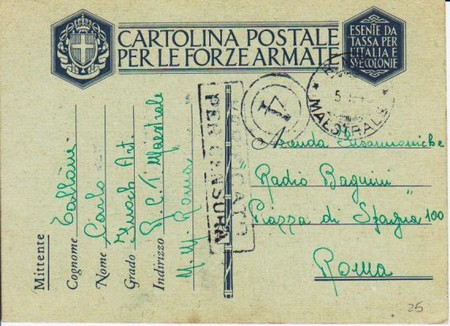 CARTOLINA POSTALE
PER LE FORZE ARMATE
ESENTE DA
TASSA PER
L'ITALIA E
SUE COLONIE
MAESTRALE
4
VERIFICATO
PER CENSURA
Mittente
Cognome
Nome Carlo
Grado Fuoch. Art.
Indirizzo R. C. T. Maestrale
Roma
Radio Bagnini
Piazza di Spagna 100
Roma
25